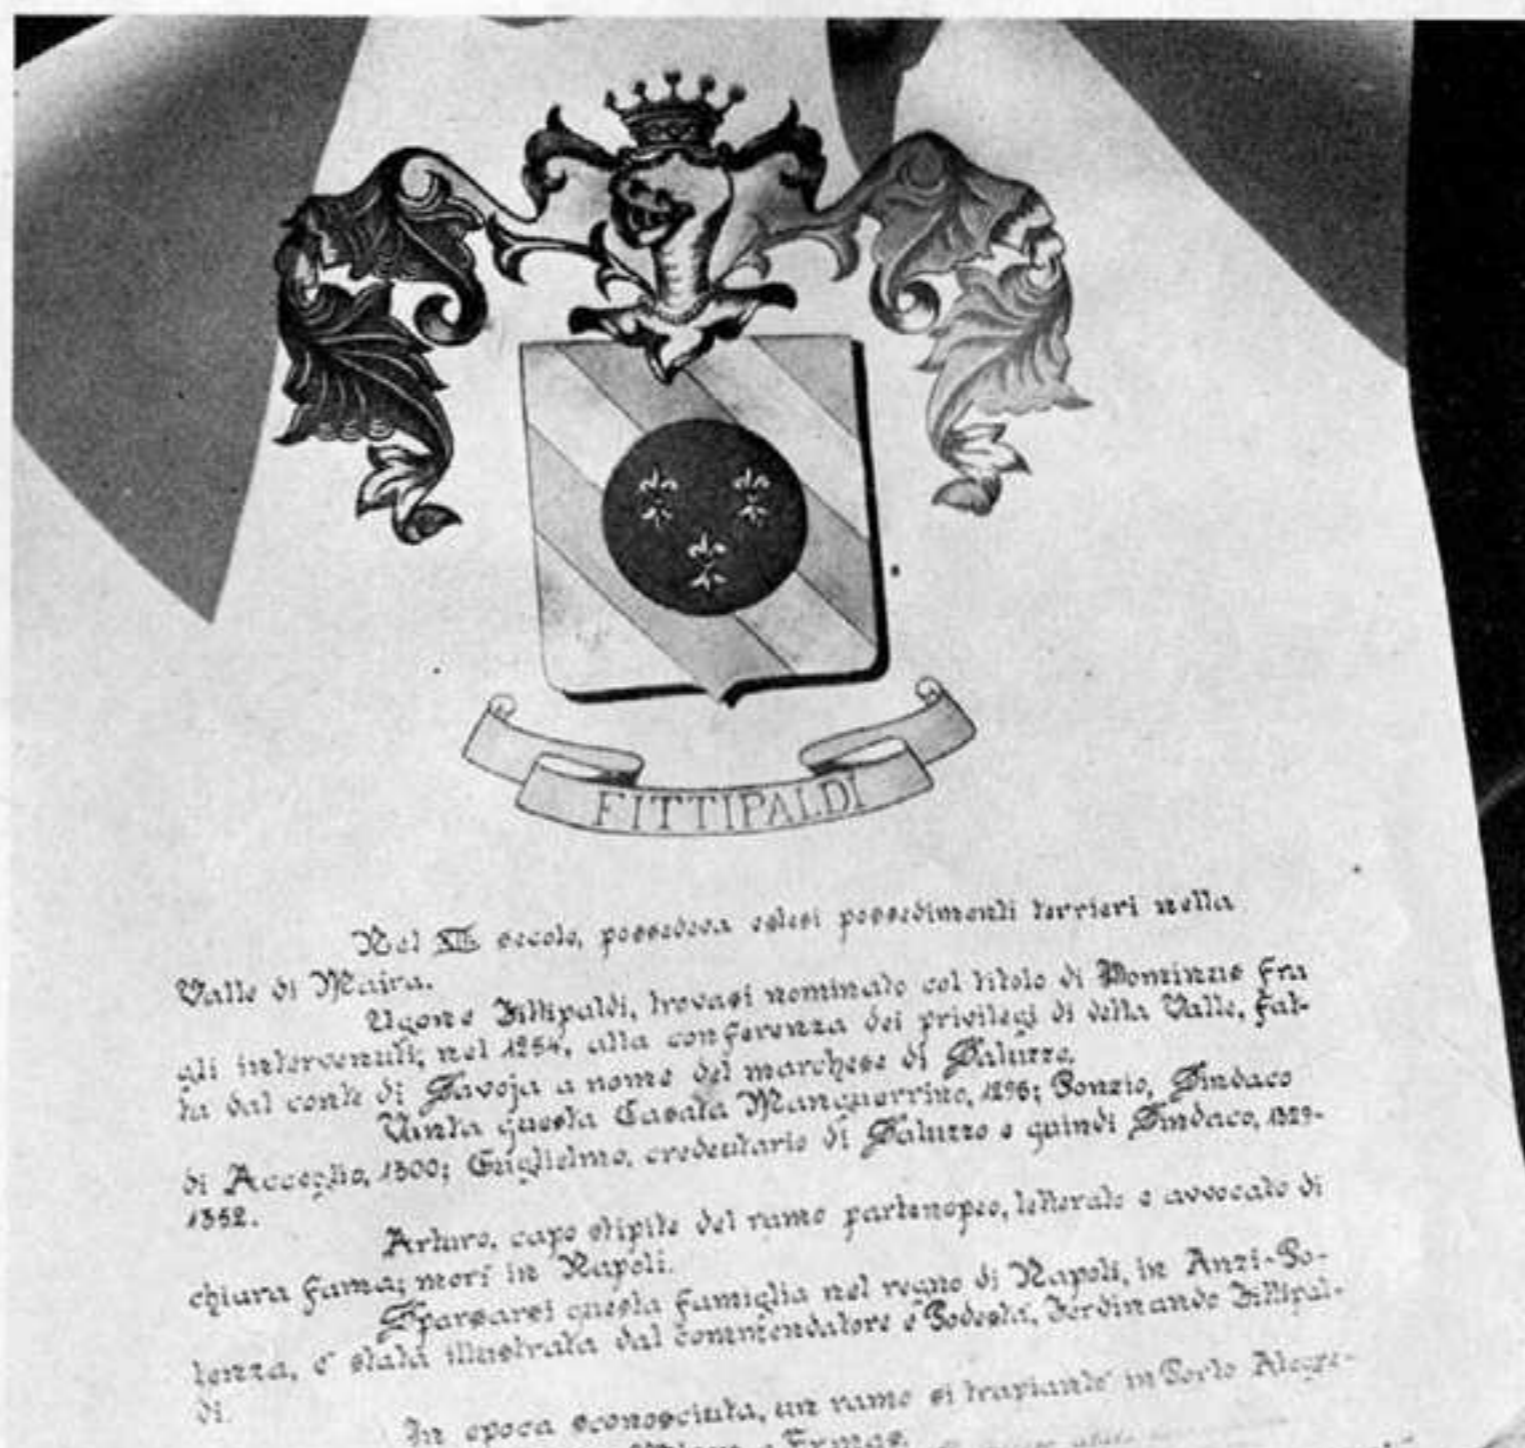 FITTIPALDI
Nel XII secolo, possedeva estesi possedimenti terrieri nella
Valle di Maira.
Ugone Fittipaldi, trovasi nominato col titolo di Monzinus fra
gli intervenuti; nel 1254, alla conferenza dei privilegi di detta Valle, fat-
ta dal conte di Savoja a nome del marchese di Saluzzo.
Vanta questa Casata Manguerrino, 1296; Ponzio, Sindaco
di Acceglio, 1300; Guglielmo, credentario di Saluzzo e quindi Sindaco, 1329-
1352.
Arturo, capo stipite del ramo partenopeo, letterato e avvocato di
chiara fama; morì in Napoli.
Sparsasi questa famiglia nel regno di Napoli, in Anzi-Po-
tenza, e' stata illustrata dal commendatore e Podestà, Ferdinando Fittipal-
di.
In epoca sconosciuta, un ramo si trapiantò in Porto Alegre-